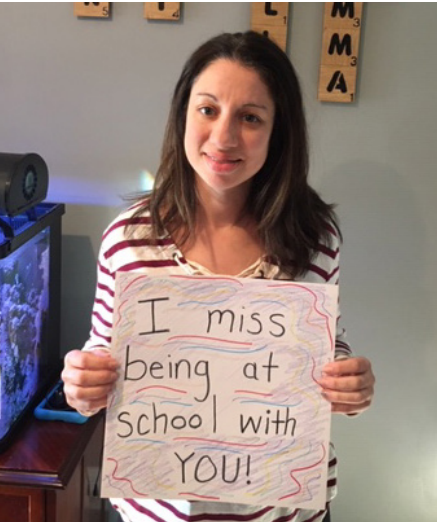 5 4
L 1
M 3
M 3
A 1
I miss
being at
school with
YOU!